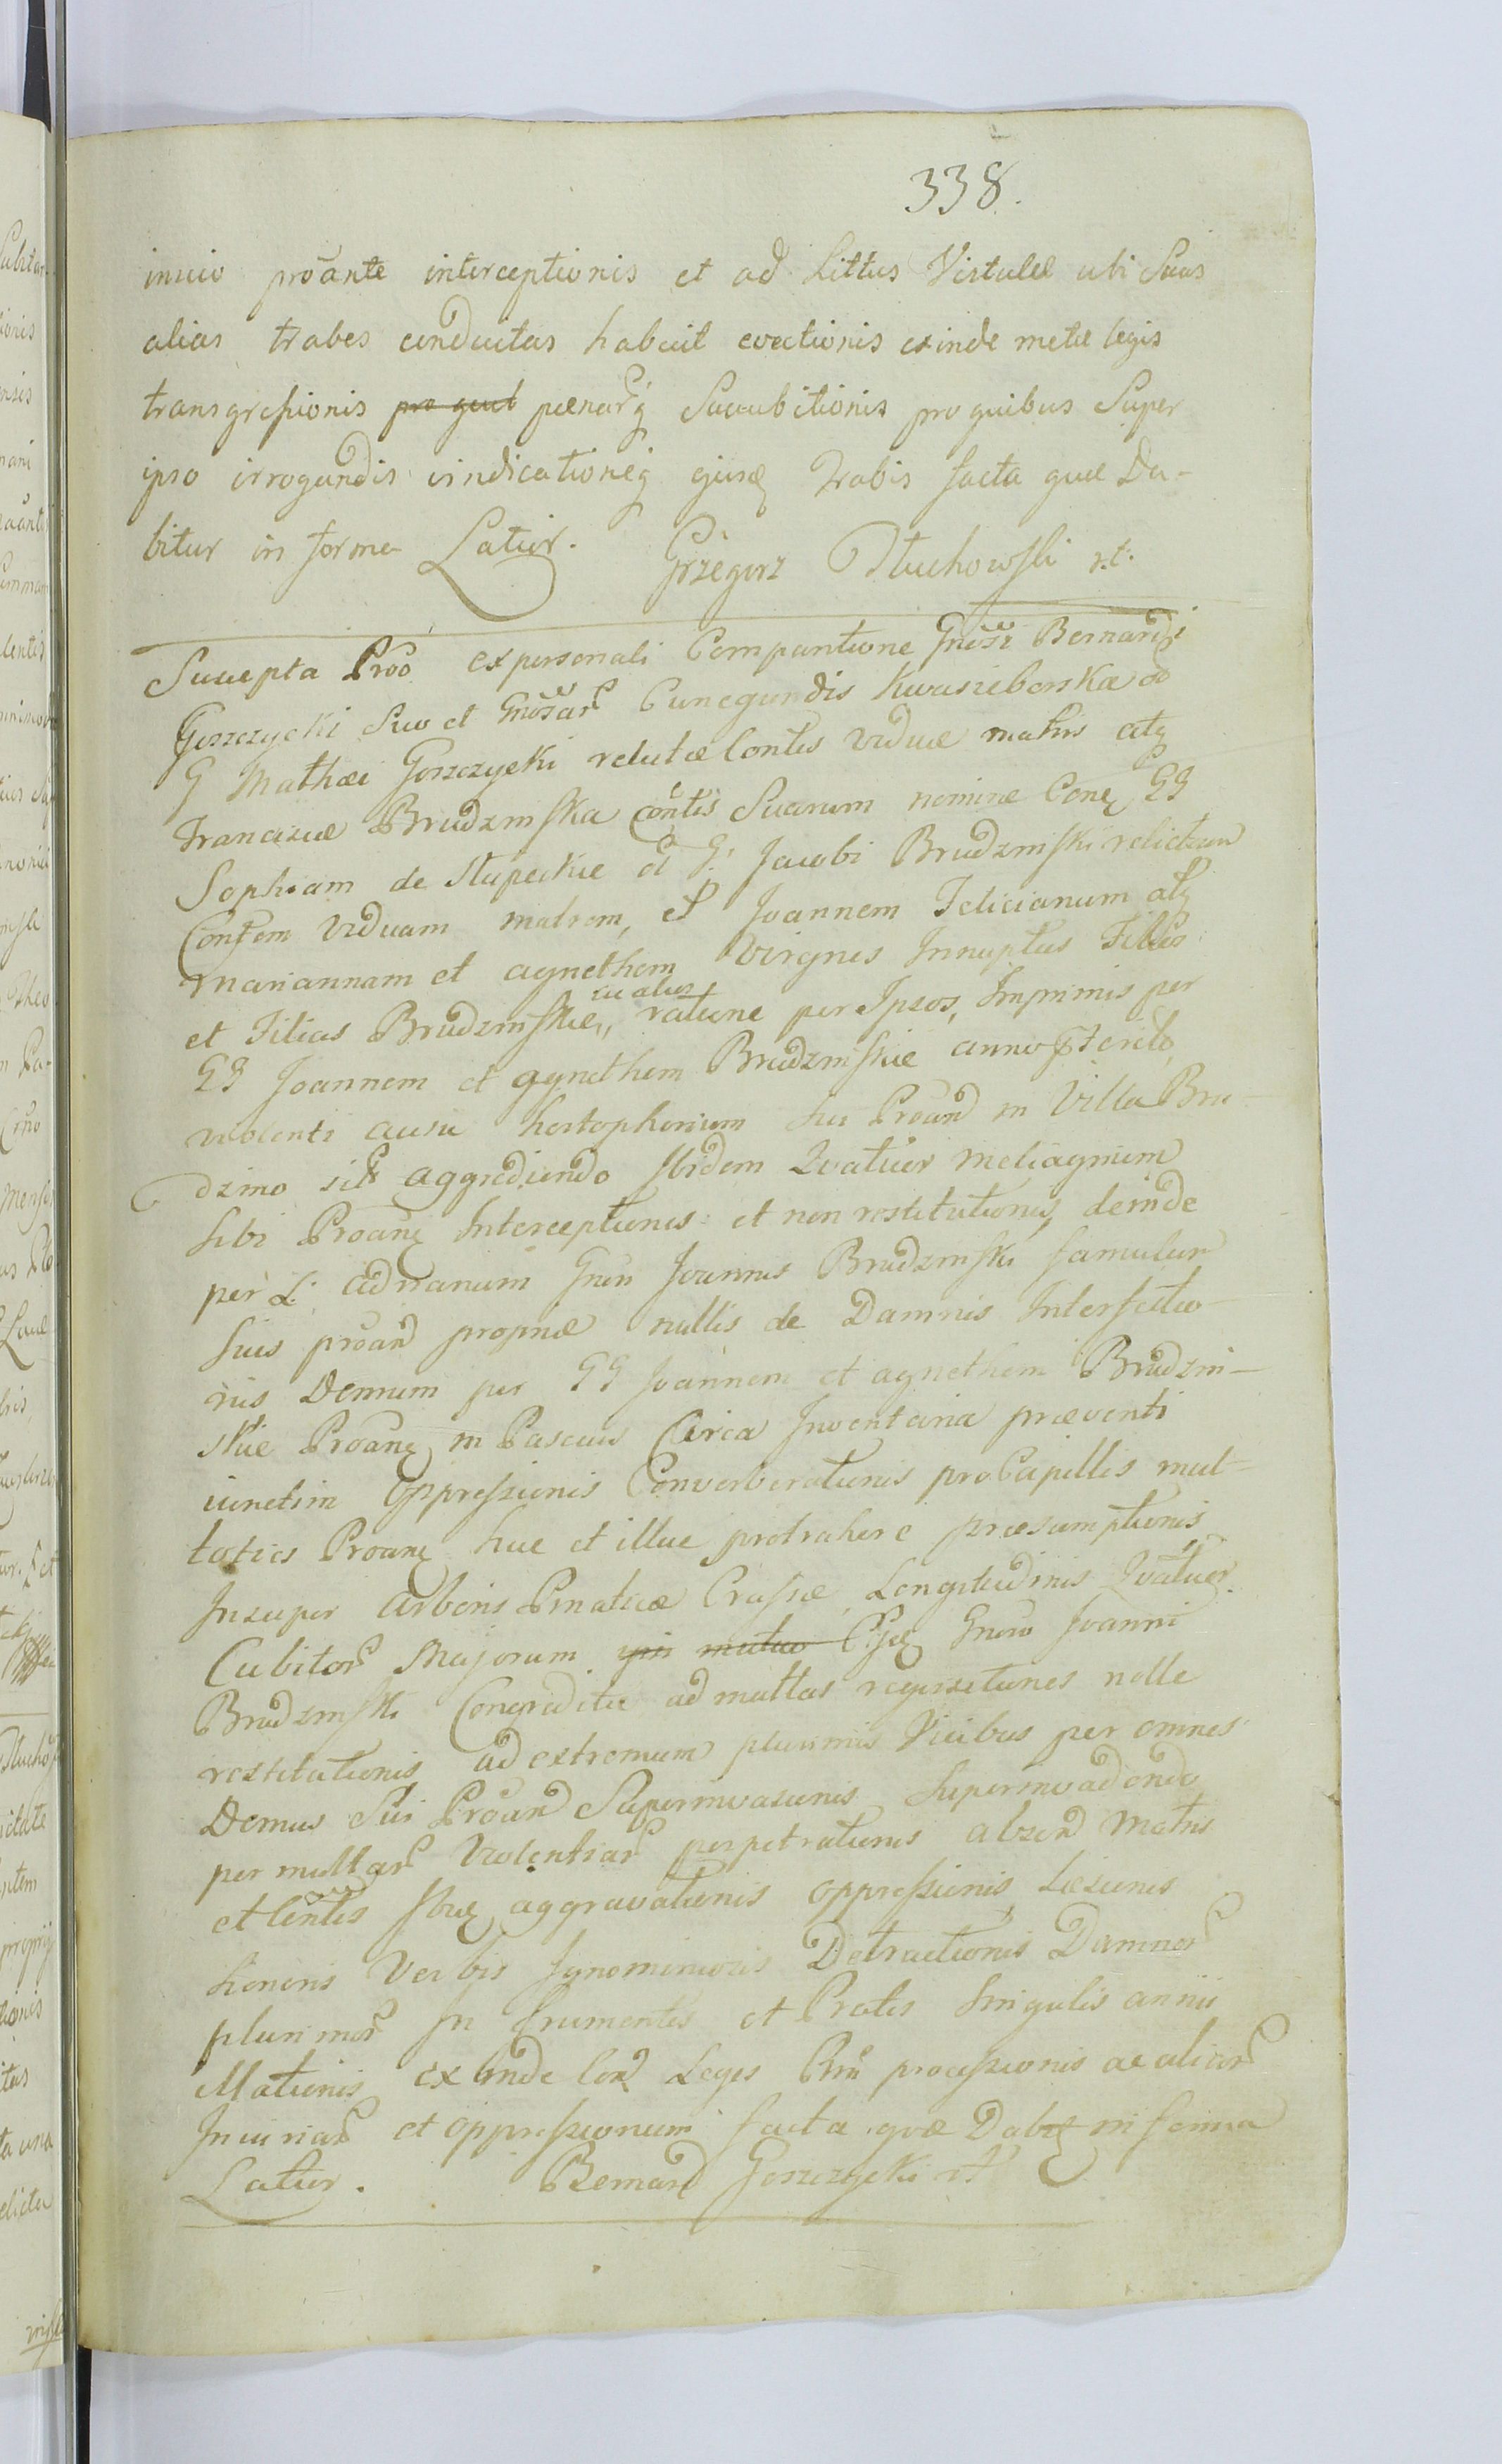 338.
invio proante interceptionis et ad Littus Vistulæ ubi Suas
alias trabes conductas habuit evectionis exinde metæ legis
transgressionis pro quib pænarq Succubitionis pro quibus Super
ipso irrogandis vindicationéq ejusd trabis facta quæ Da-
bitur in forma Latior. Grzegorz Dłuchowski rt.
Suscepta Proo ex personali Comparitione Gnosi Bernardi
Goszczycki Suo et Gnosar Cunegundis Kwasieborska od
G Mathæi Goszczycki relictæ Contis viduæ matris atq
Franciscæ Brudzinska Contis Suarum nomine Conq GG
Sophiam de Słupeckie ol G. Jacobi Brudzinski relictam
Contem viduam matrem, et Joannem Felicianum atq
mariannam et agnethem Virgines Innuptas Filios
et Filias Brudzinskie, ratione per Ipsos, Imprimis per
GG Joannem et agnethem Brudzinskie anno
violenti ausu hortophorium sui Proand in Villa Bru-
dzino sit aggrediendo Ibidem Quatuor meliagrium
sibi Proanq Interceptionis et non restitutionis, deinde
per L. Adrianum Gnen Joannis Brudzinski famulum
suis proand propriæ nullis de Damnis Interfectio-
nis Demum per GG Joannem et agnethem Brudzin-
skie Proanq in Pascuis Circa Inventaria præventi
iunctim Oppressionis Converberationis pro Capillis mul-
toties Proanq huc et illuc protrahere præsumptionis
Insuper arboris Crassæ, Longitudinis Quatuor
Cubitor Majorum ipsi mutuo Gnoso Joanni
Brudzinski Concreditæ ad multas requisitiones nolle
restitutionis ad extremum plurimis Vicibus per omnes
Domus Sui Proand Superinvasionis Superinvadendo
per multar Violentiar perpetrationis absend Matris
et Contis aggravationis oppressionis Læsionis
honoris Verbis Ignominiosis Detractionis Damnor
plurimor In frumentis et Pratis Singulis annis
illationis ex Inde Con Leges processionis ac alior
Iniuriar et oppressionum facta quæ Dabit in forma
Latior. Bernard Goszczycki rt